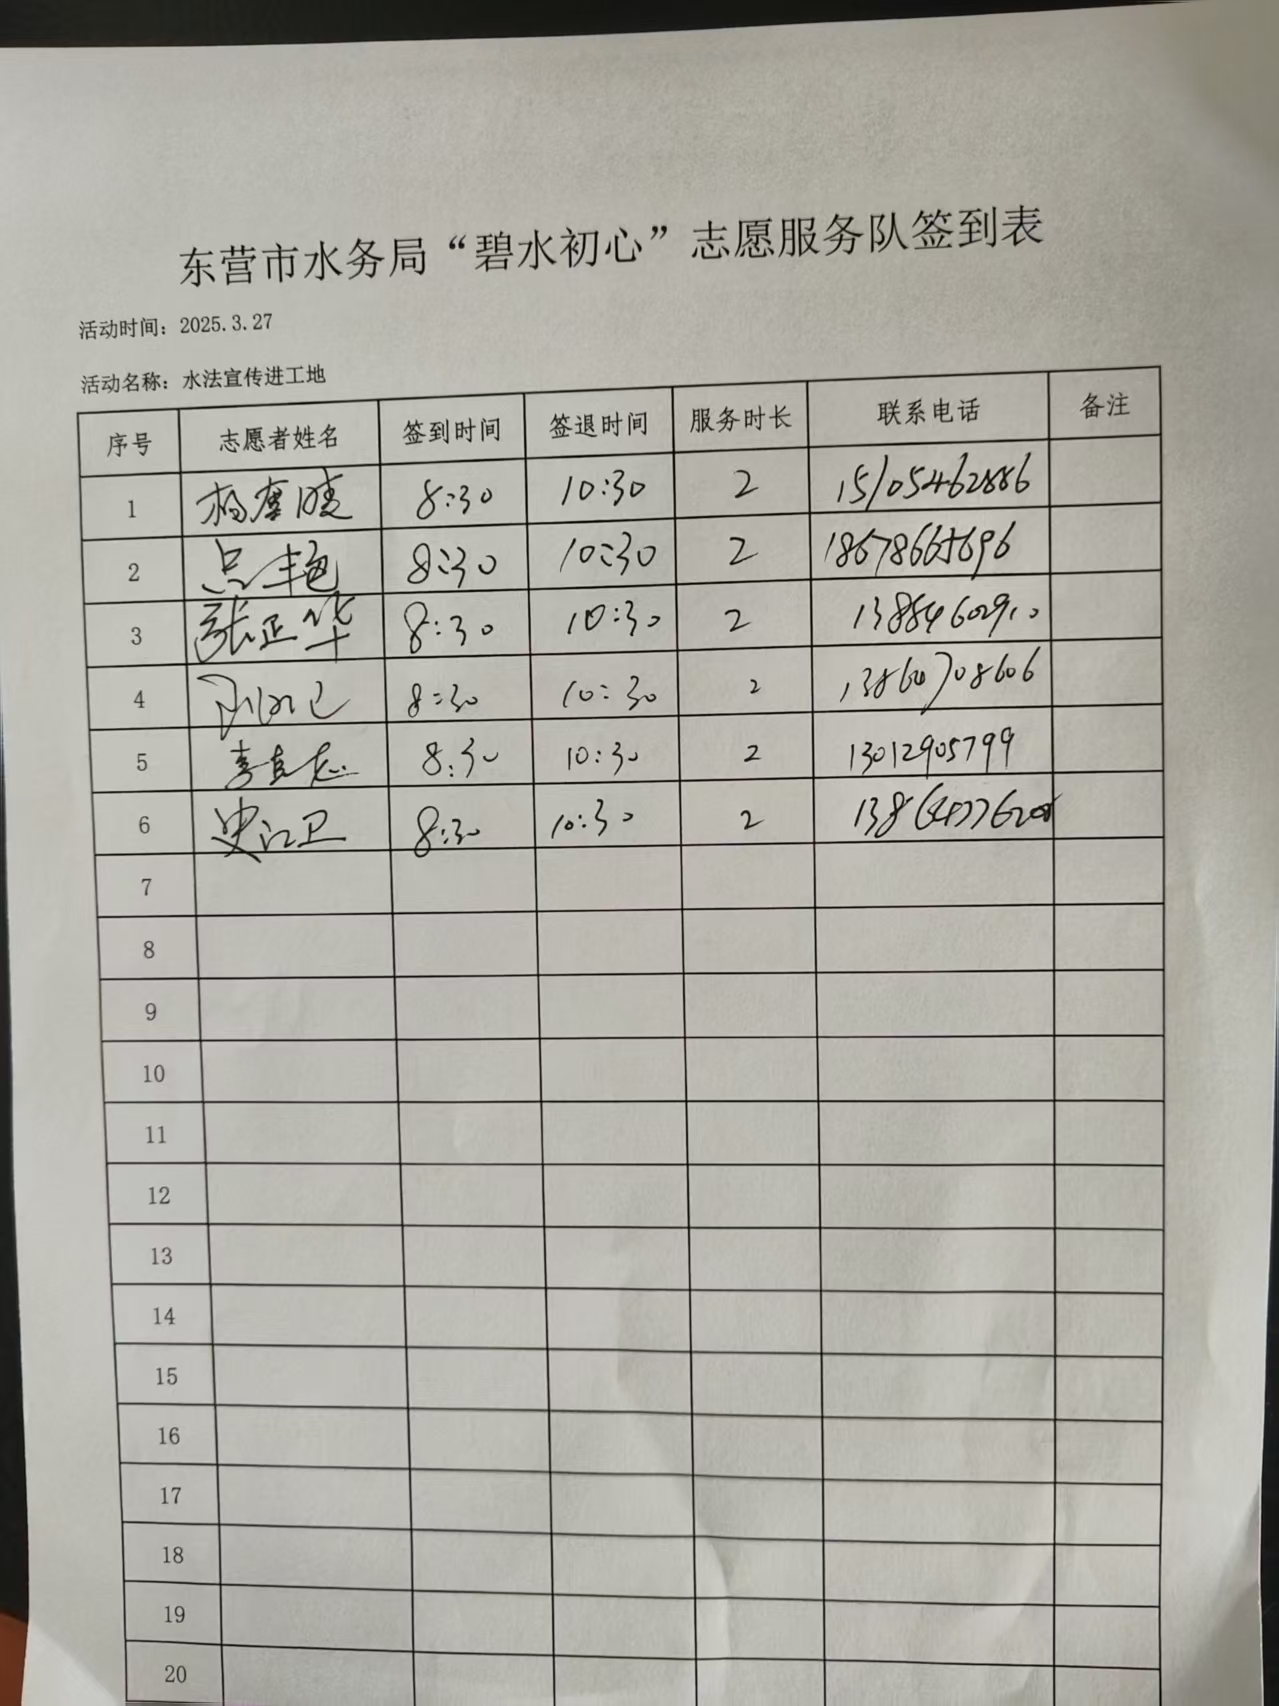 东营市水务局“碧水初心”志愿服务队签到表
活动时间：2025.3.27
活动名称：水法宣传进工地
序号 志愿者姓名 签到时间 签退时间 服务时长 联系电话 备注
1 8:30 10:30 2 15105462886
2 8:30 10:30 2 18678665696
3 张正华 8:30 10:30 2 13854602910
4 8:30 10:30 2
5 8:30 10:30 2 13012905799
6 史江卫 8:30 10:30 2
7
8
9
10
11
12
13
14
15
16
17
18
19
20